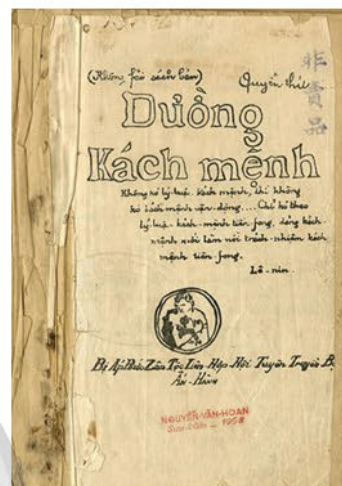 (Không fải sách bán)
Quyển thứ
非賣品
Đường
Kách mệnh
Không kó lý-luận kách mệnh, thì không
kó kách mệnh vận-động.... Chỉ kó theo
lý-luận kách-mệnh tiền-fong, đảng kách-
mệnh mới làm nổi trách-nhiệm kách
mệnh tiền-fong.
Lê-nin.
Bị Áp Bức Zân Tộc Liên Hợp Hội Tuyên Truyền Bộ
Ấn-Hành
NGUYỄN-VĂN-HOAN
Sưu-tầm _ 1958